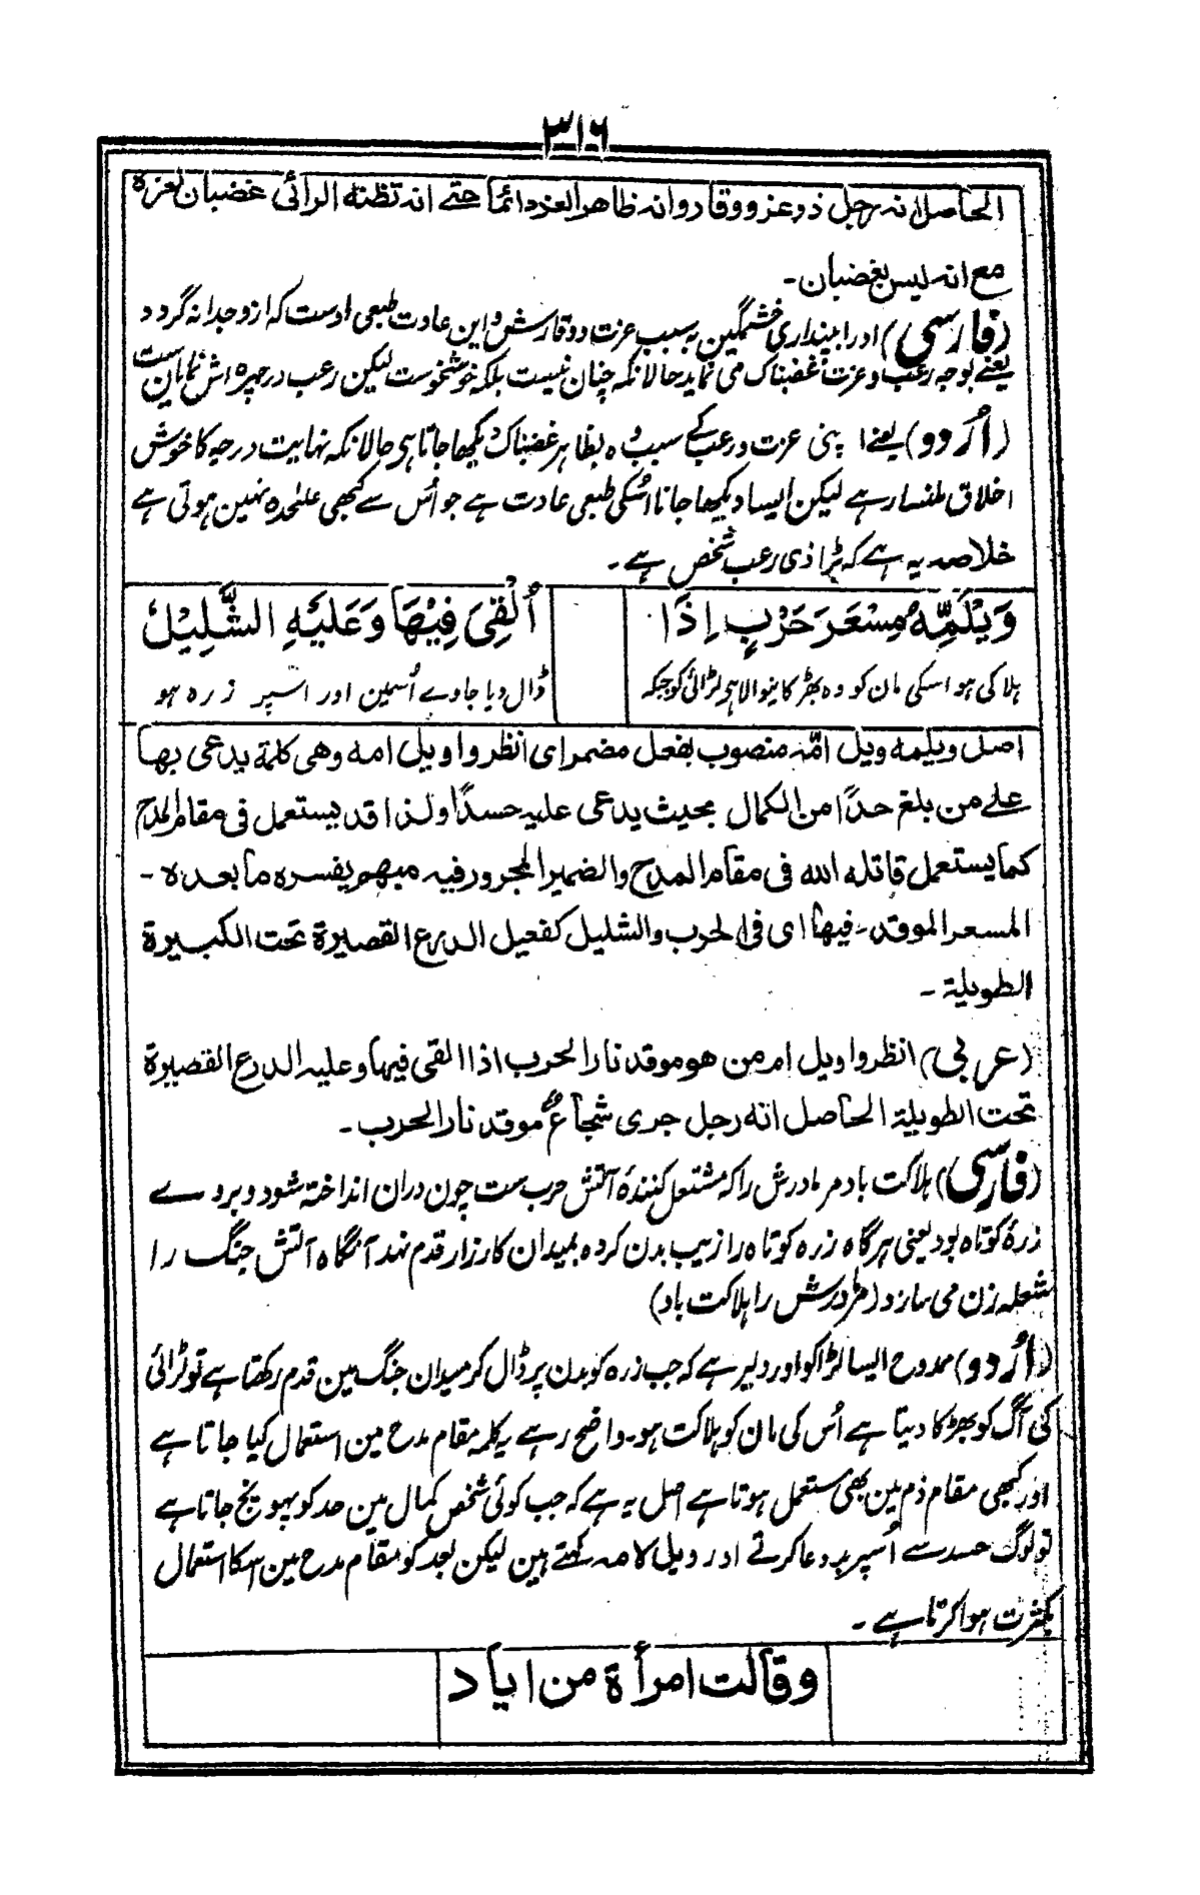 ٣١٦
الحاصل انہ رجل ذو عز و وقار و انہ ظاھر العز دائمًا حتے انہ تظنہ الرائی غضبان لعزہ
مع انہ لیس بغضبان۔
(فارسی) اورا پنداری خشمگین بہ سبب عزت و وقارش و این عادت طبعی اوست کہ ازو جدا نہ گردد
یعنے بوجہ رعب و عزت غضبناک می نماید حالانکہ چنان نیست بلکہ خوشخوست لیکن رعب در چہرہ اش نمایان ست
(اُردو) یعنے اپنی عزت و رعب کے سبب وہ بظاہر غضبناک دیکھا جاتا ہی حالانکہ نہایت درجہ کا خوش
اخلاق ملنسار ہے لیکن ایسا دیکھا جانا اُسکی طبعی عادت ہے جو اُس سے کبھی علٰحدہ نہین ہوتی ہے
خلاصہ یہ ہے کہ بڑا ذی رعب شخص ہے۔
وَیْلُمِّہٖ مِسْعَرَ حَرْبٍ اِذَا
اُلْقِیَ فِیْھَا وَعَلَیْہِ الشَّلِیْلُ
ہلاکی ہو اسکی مان کو وہ بھڑکانیوالا ہی لڑائی کو جبکہ
ڈال دیا جاوے اُسمین اور اسپر زرہ ہو
اصل ویلمہ ویل امّہ منصوب بفعل مضمر ای انظروا ویل امہ وھی کلمۃ یدعی بھا
علے من بلغ حدًا من الکمال بحیث یدعی علیہ حسدًا ولذا قد یستعمل فی مقام المدح
کما یستعمل قاتلہ اللہ فی مقام المدح والضمیر المجرور فیہ مبھم یفسرہ ما بعدہ۔
المسعر الموقد۔ فیھا ای فی الحرب والشلیل کفعیل الدرع القصیرۃ تحت الکبیرۃ
الطویلۃ۔
(عربی) انظروا ویل ام من ھو موقد نار الحرب اذا القی فیھا وعلیہ الدرع القصیرۃ
تحت الطویلۃ الحاصل انہ رجل جری شجاعٌ موقد نار الحرب۔
(فارسی) ہلاکت باد مر مادرش را کہ مشتعل کنندۂ آتش حرب ست چون دران انداختہ شود و بروے
زرۂ کوتاہ بود یعنی ہرگاہ زرہ کوتاہ را زیب بدن کردہ بمیدان کارزار قدم نہد آنگاہ آتش جنگ را
شعلہ زن می سازد (مادرش را ہلاکت باد)
(اُردو) ممدوح ایسا لڑاکو اور دلیر ہے کہ جب زرہ کو بدن پر ڈال کر میدان جنگ مین قدم رکھتا ہے تو لڑائی
کی آگ کو بھڑکا دیتا ہے اُس کی مان کو ہلاکت ہو۔ واضح رہے یہ کلمہ مقام مدح مین استعمال کیا جاتا ہے
اور کبھی مقام ذم مین بھی مستعمل ہوتا ہے اصل یہ ہے کہ جب کوئی شخص کمال مین حد کو پہونچ جاتا ہے
تو لوگ حسد سے اُسپر بددعا کرتے اور ویل لامہ کہتے ہین لیکن بعد کو مقام مدح مین اسکا استعمال
بکثرت ہوا کرتا ہے۔
وقالت امرأۃ من ایاد